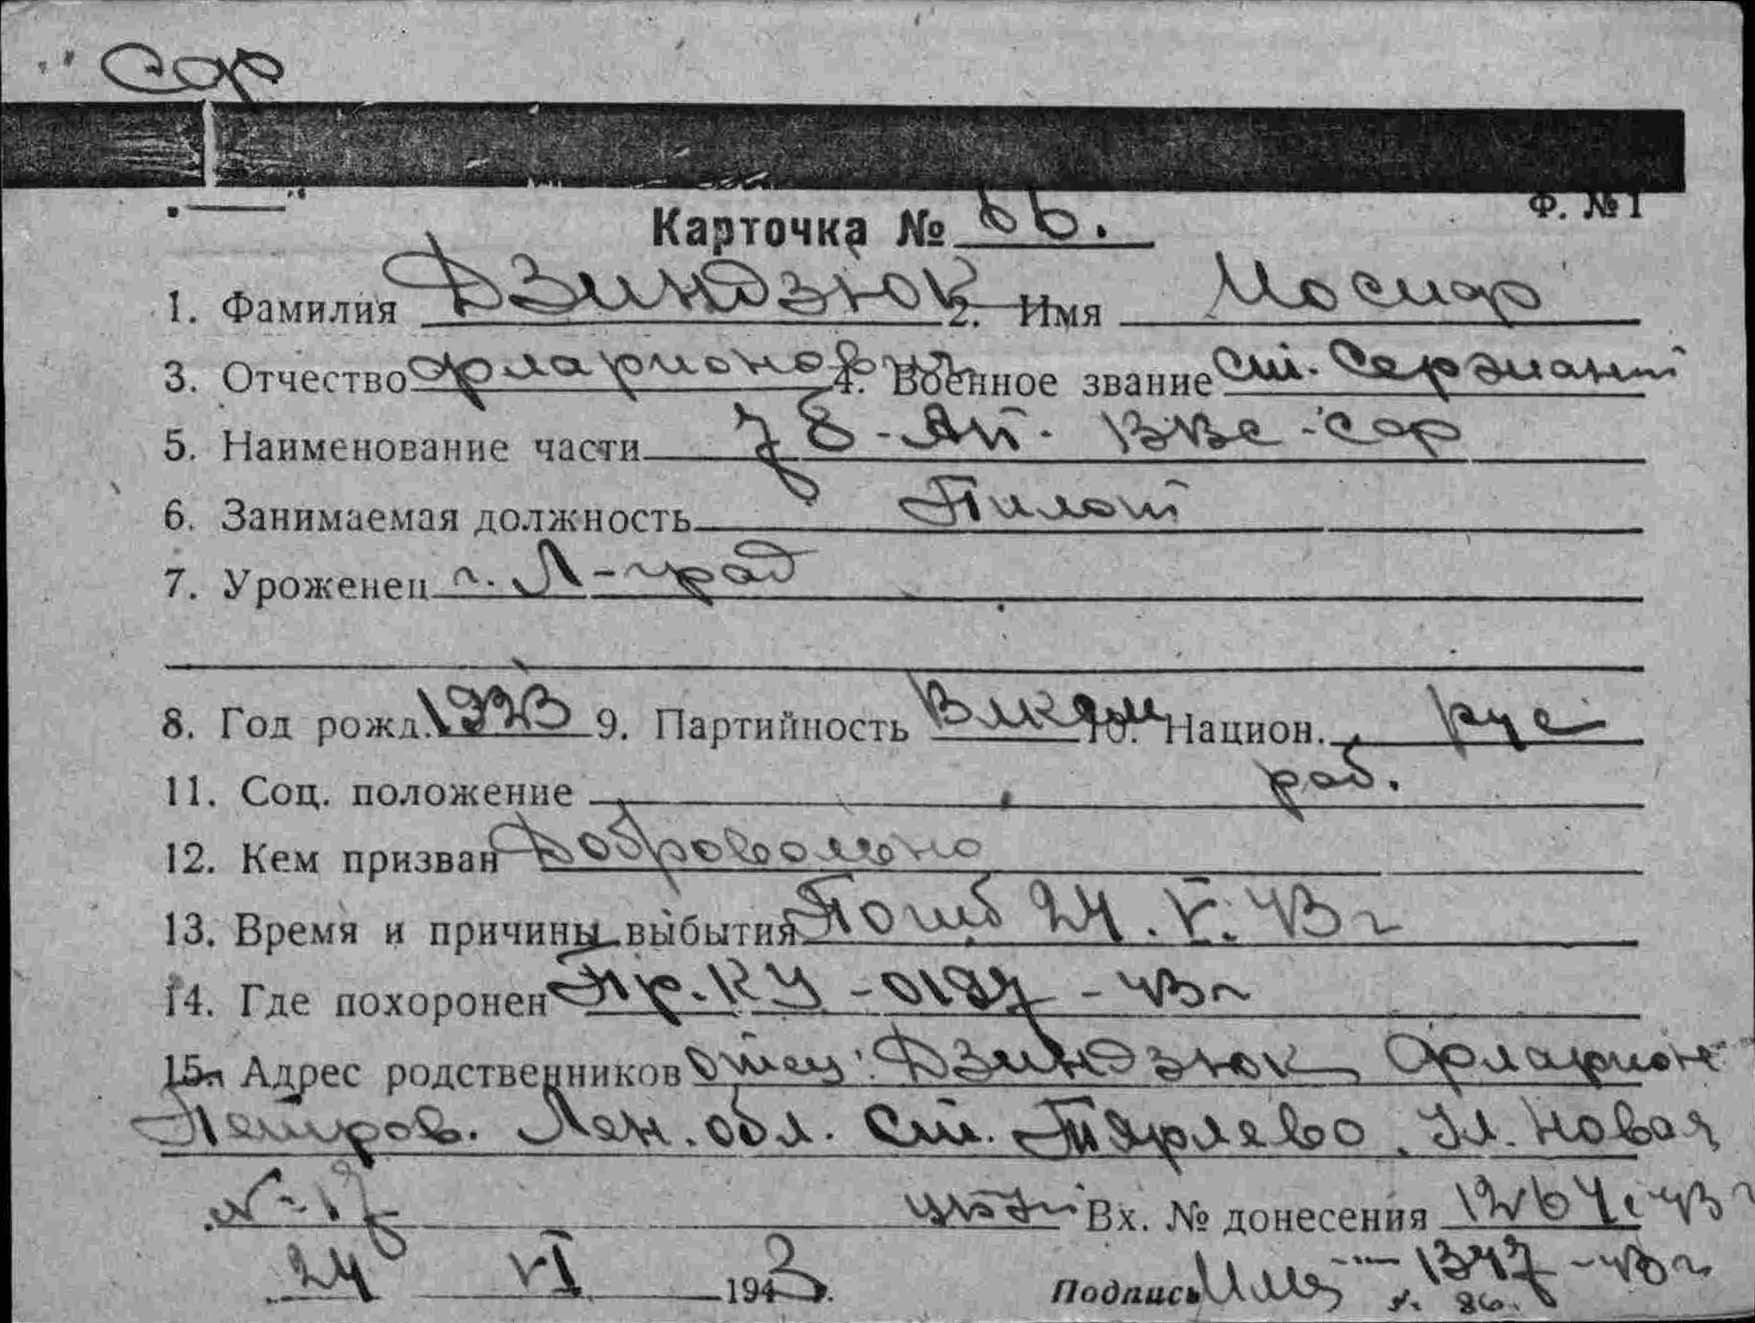 Сар
Ф. № 1
Карточка № 66.
1. Фамилия Дзиндзюк 2. Имя Иосиф
3. Отчество Фларионов 4. Военное звание ст. Сержант
5. Наименование части 78-АП. ВВС-Сар
6. Занимаемая должность Пилот
7. Уроженец г. Л-град
8. Год рожд. 1923 9. Партийность ВЛКСМ 10. Национ. рус
11. Соц. положение раб.
12. Кем призван Добровольно
13. Время и причины выбытия Погиб 24.V.43 г
14. Где похоронен
15. Адрес родственников отец: Дзиндзюк Фларион
Петров. Лен. обл. ст. Тярлево. Ул. Новая
Вх. № донесения
24 VI 1943 г.
Подпись